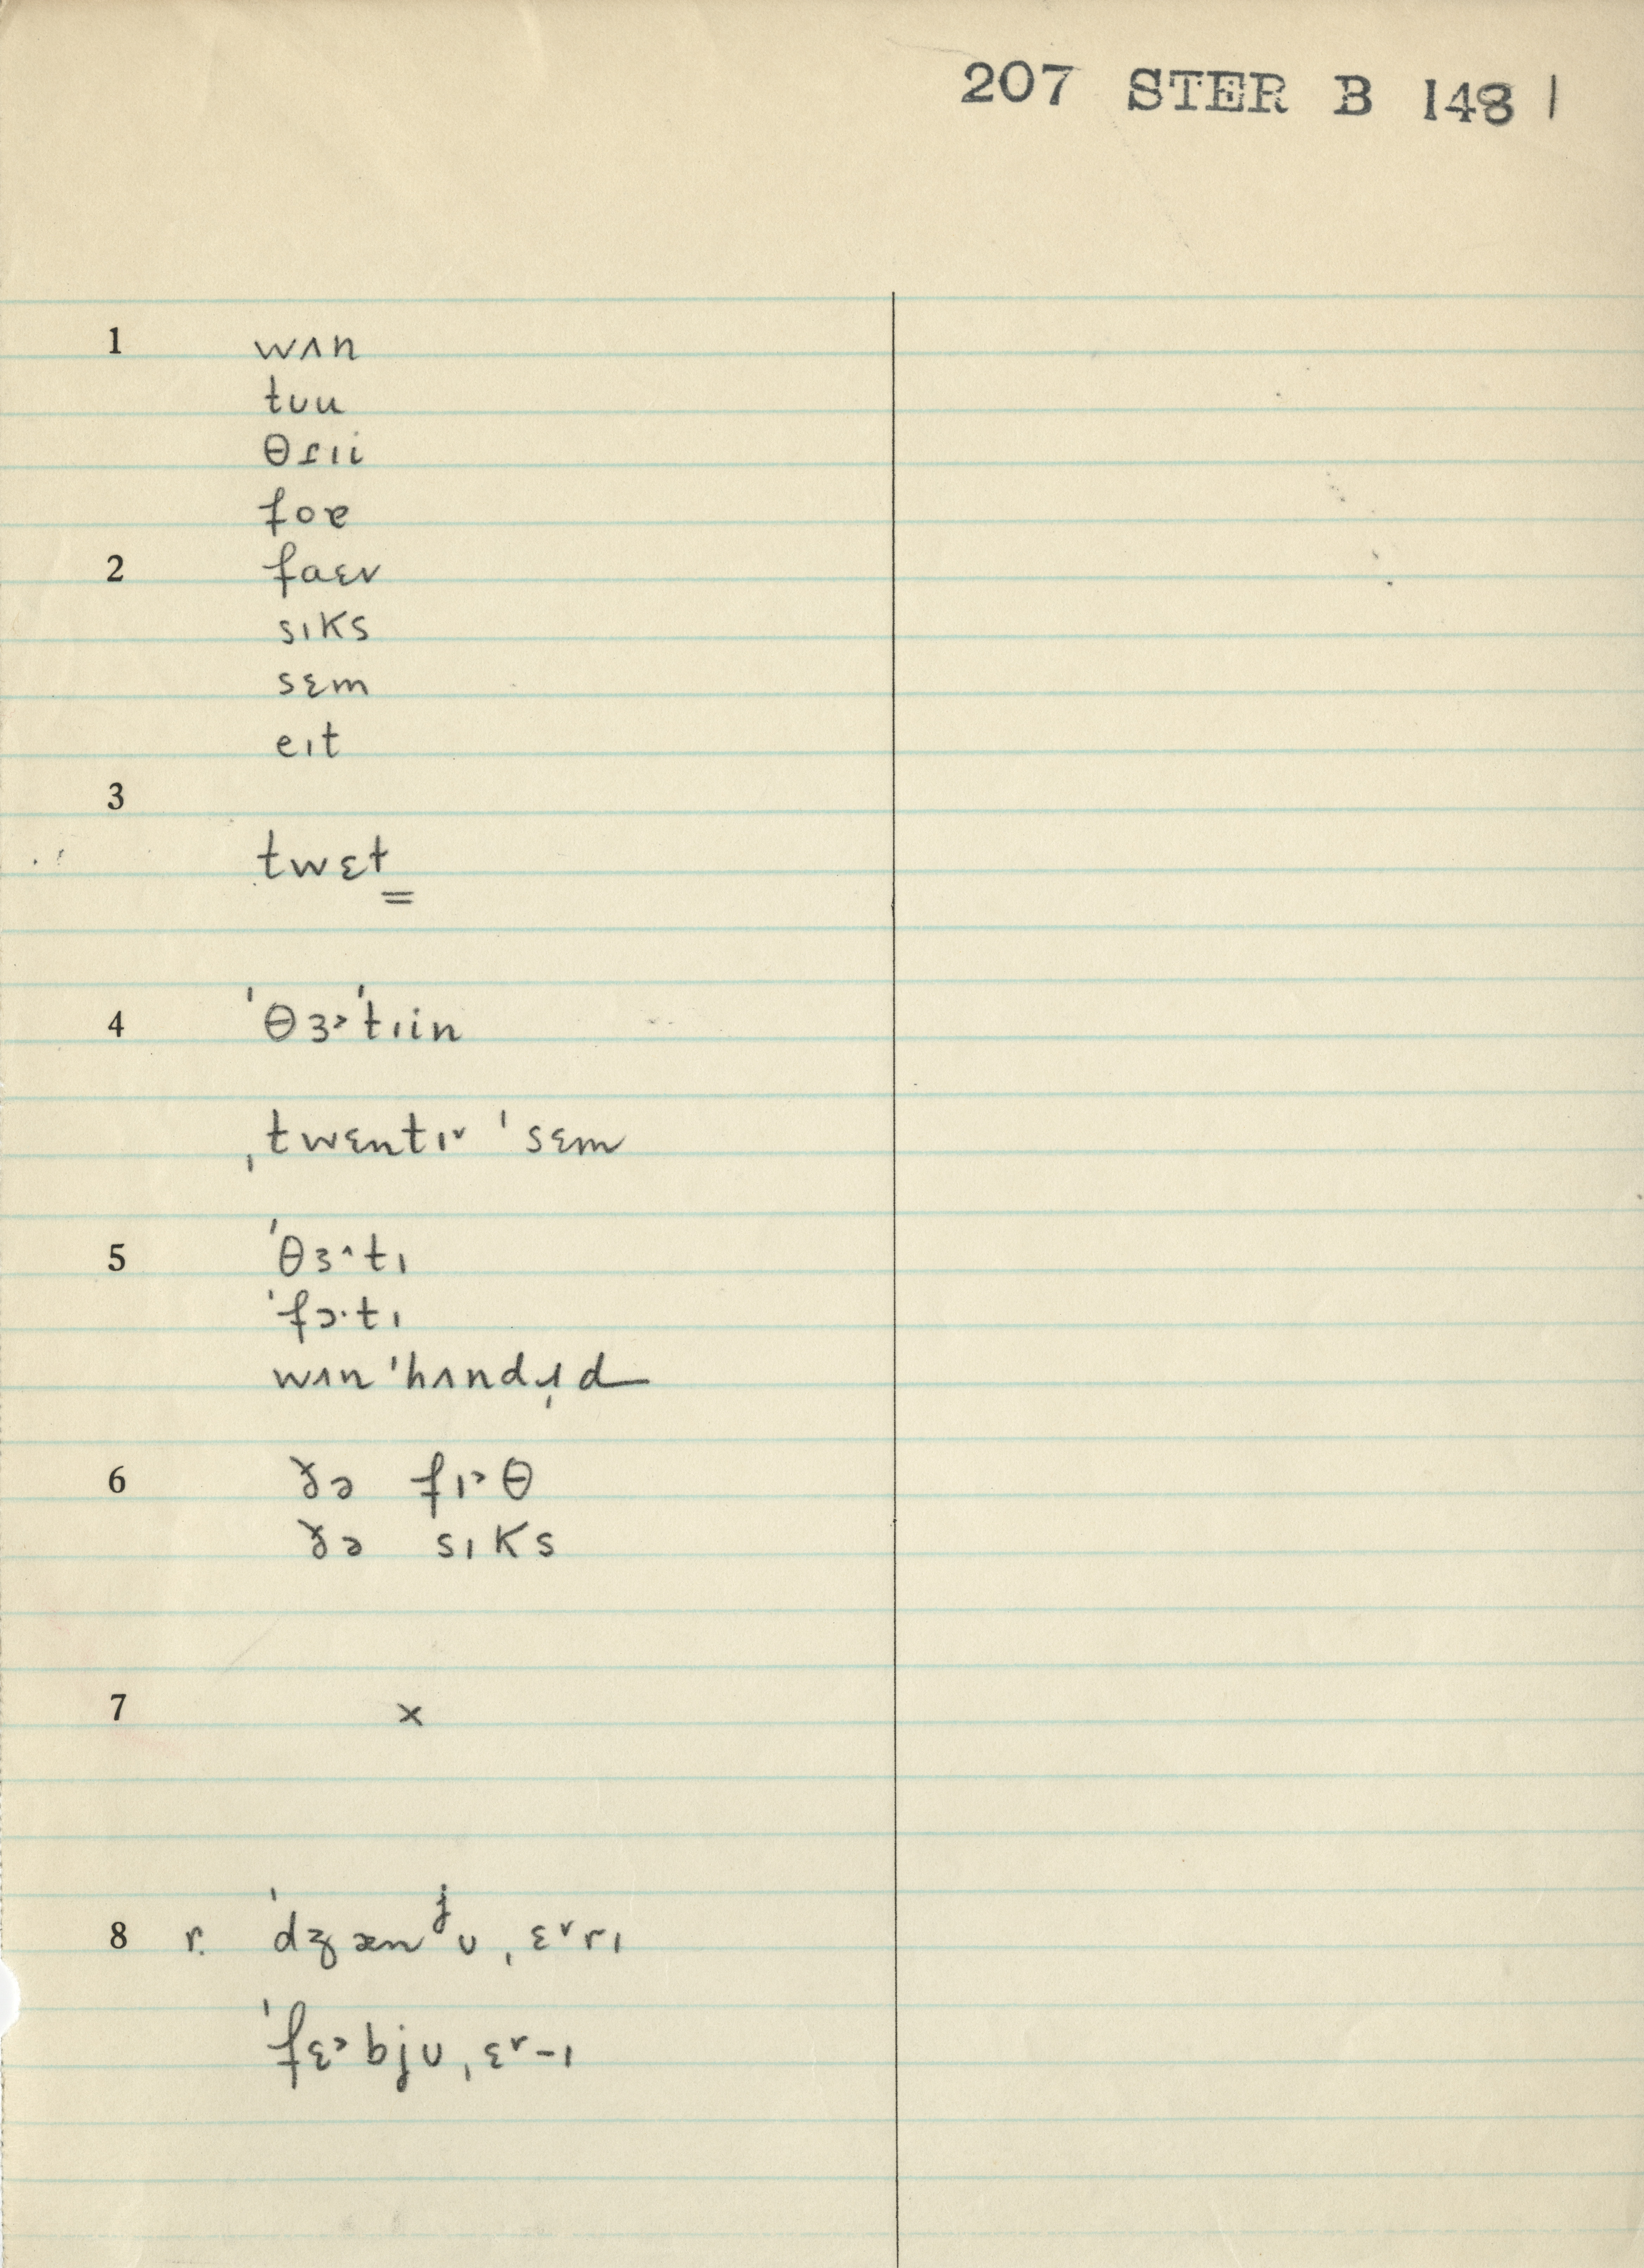 207 STER B 148 |
1 wʌn
tʊu
θɾɪi
foɐ
2 faɛv
sɪks
sɛm
eɪt
3
twɛt
4 ˈθɜ˃ˈtɪin
ˌtwɛntɪ˅ ˈsɛm
5 ˈθɜ˄tɪ
ˈfɔ·tɪ
wʌn ˈhʌndɹ̩d
6 ðə fɪ˃θ
ðə sɪks
7 ×
8 r. ˈdʒænʲʊˌɛ˅rɪ
ˈfɛ˃bjʊˌɛ˅-ɪ